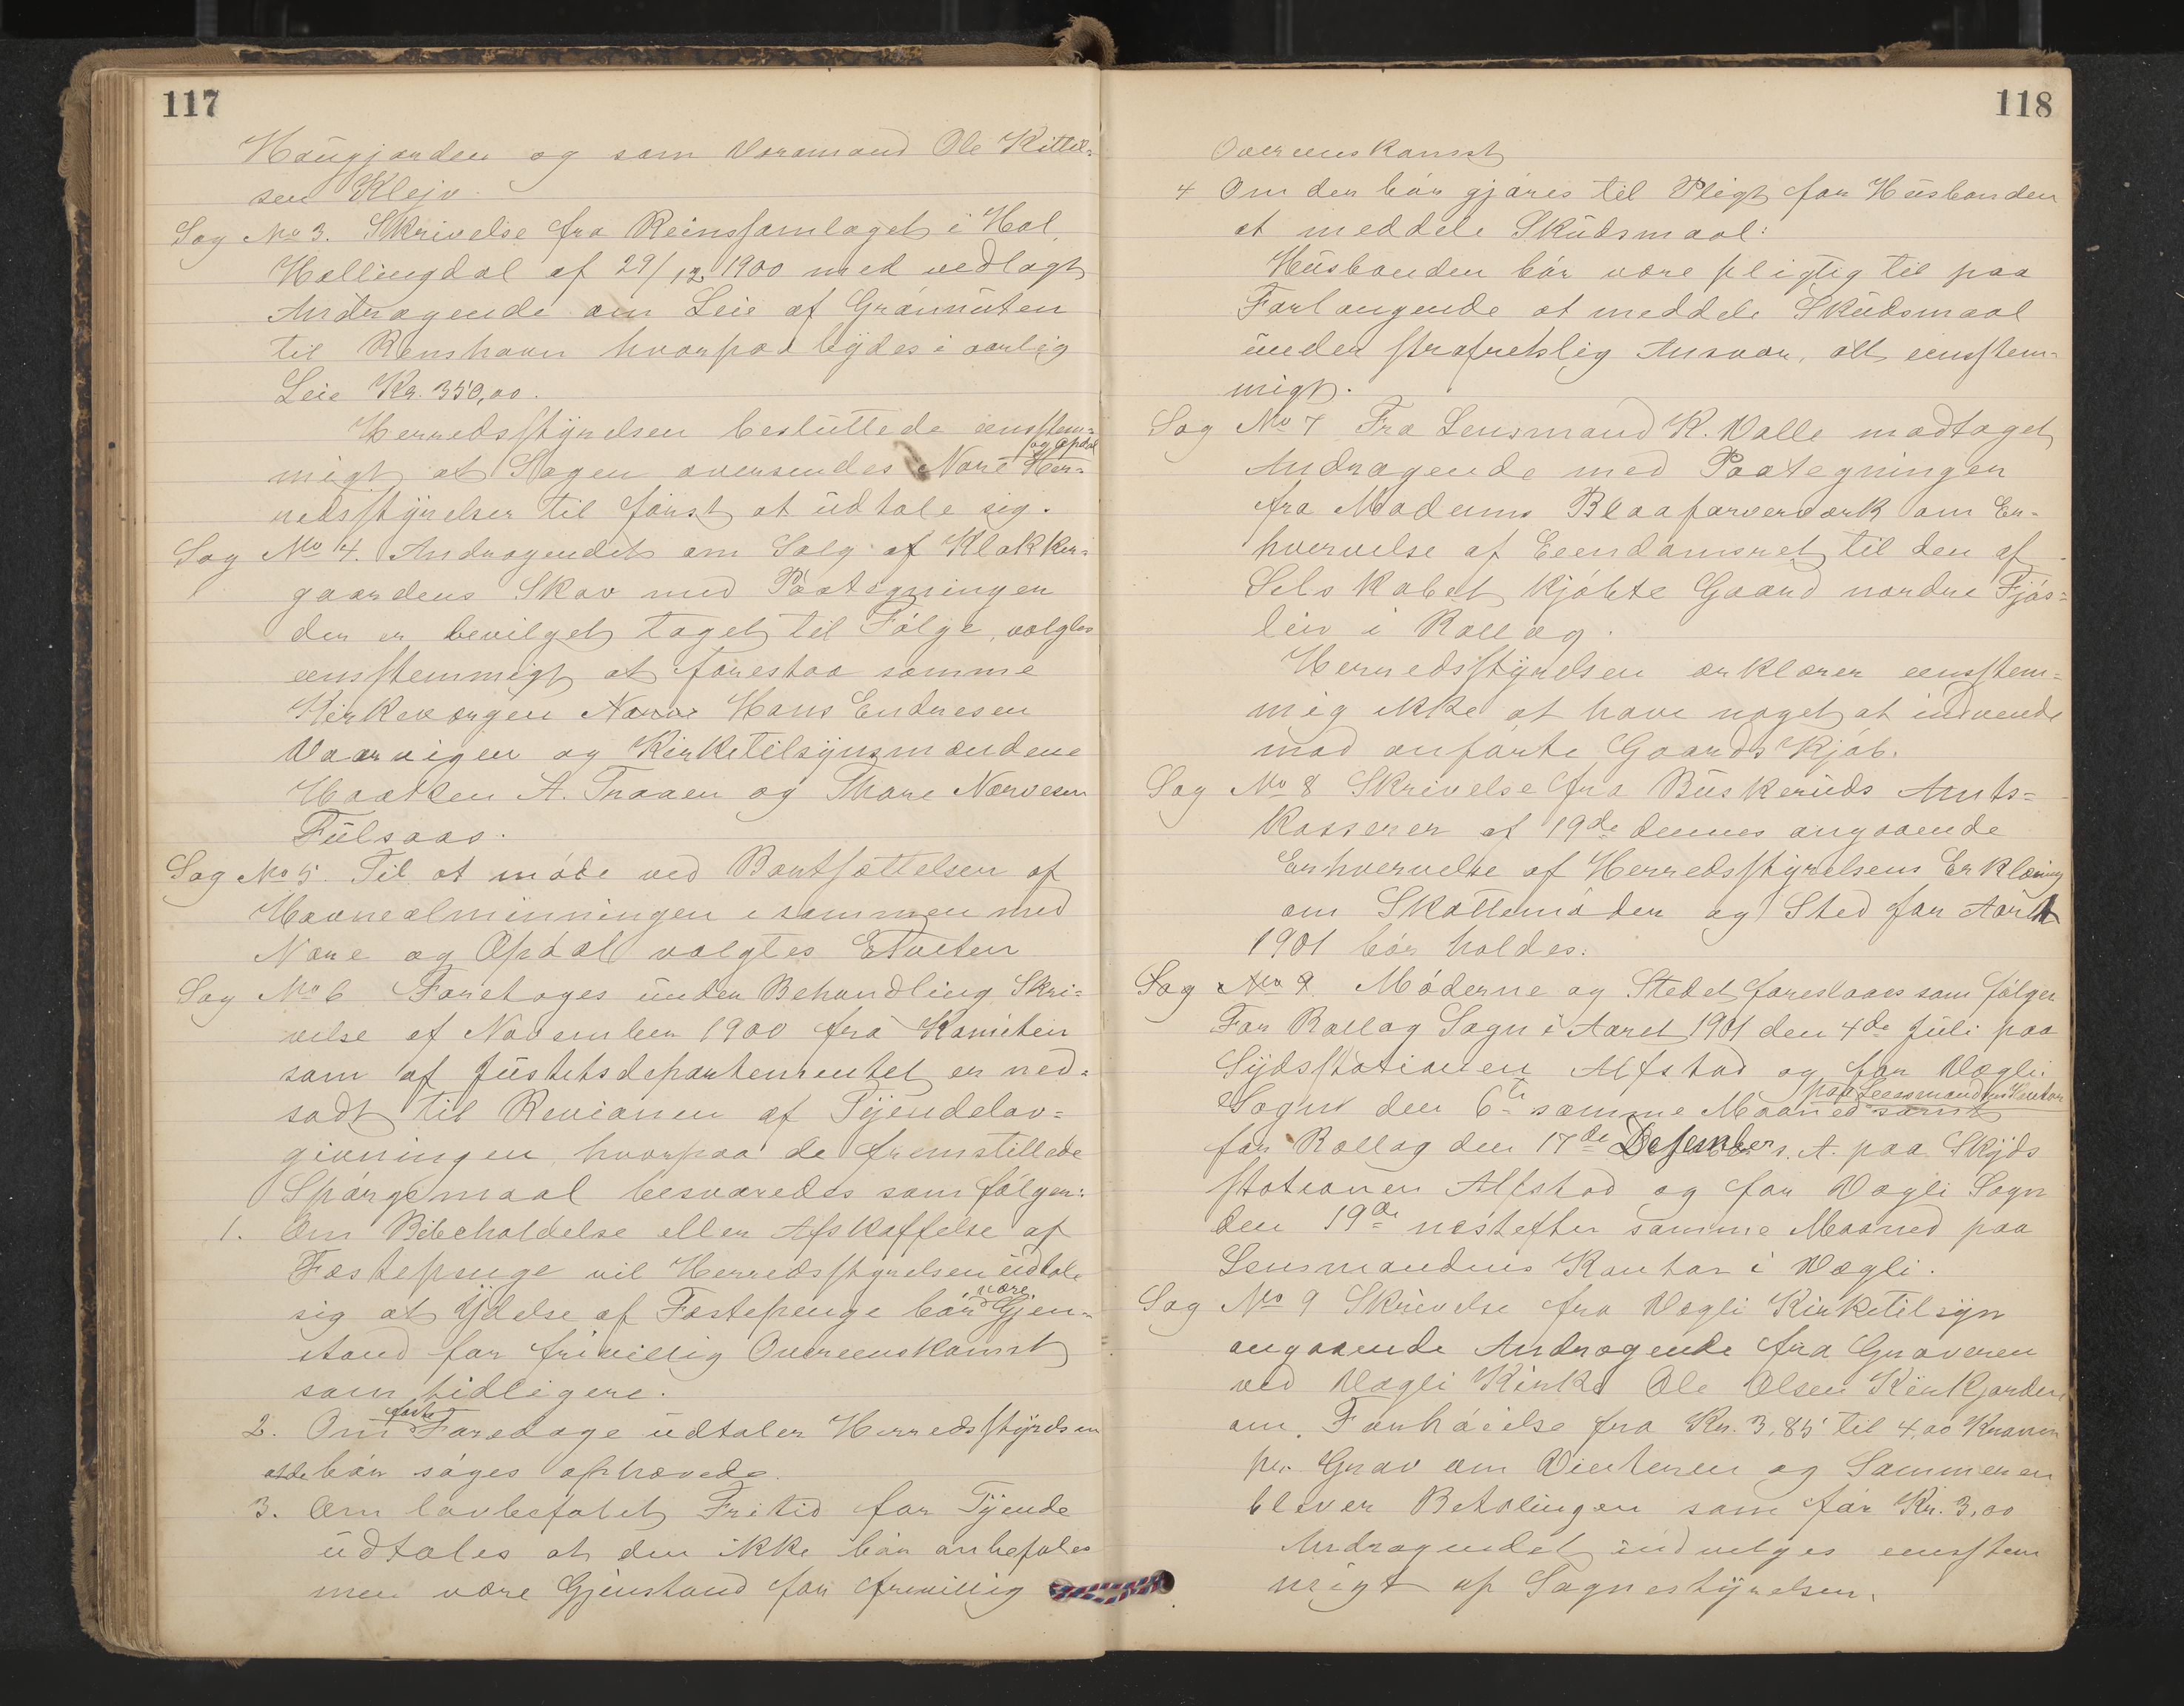 117
Haugjorden og som Varamand Ole Kittil-
sen Klejv.
Sag No 3. Skrivelse fra Reinsfamlaget i Hol,
Hallingdal af 29/12 1900 med vedlagt
Andragende om Leie af Grønnuten
til Renshavn hvorpaa bydes i aarlig
Leie Kr. 350,00.
Herredsstyrelsen besluttede eensstem-
migt at Sagen oversendes Nore og Opdal Her-
redsstyrelser til først at udtale sig.
Sag No 4. Andragendet om Salg af Klokker-
gaardens Skov med Paategningen
der er bevilget taget til Følge, valgtes
eensstemmigt at forestaa samme
Kirkeværgen Hans Endresen
Vaarvigen og Kirketilsynsmændene
Haaken A. Traaen og Thore Narvesen
Fulsaas.
Sag No 5. Til at møde ved Bortsættelsen af
Havnealminningen i sammen med
Nore og Opdal valgtes E Tveten
Sag No 6 Foretoges under Behandling Skri-
velse af November 1900 fra Komiteen
som af Justitsdepartementet er ned-
sadt til Revisionen af Tyendelov-
givningen, hvorpaa de fremstillede
Spørgsmaal besvaredes som følger:
1. Om Bibeholdelse eller Afskaffelse af
Fæstepenge vil Herredsstyrelsen udtale
sig at Ydelse af Fæstepenge bør være Gjen-
stand for frivillig Overeenskomst
som tidligere.
2. Om faste Faredage udtaler Herredsstyrelsen
at de bør søges ophævede.
3. Om lovbefalet Fritid for Tyende
udtales at den ikke bør anbefales
men være Gjenstand for frivillig
118
Overeenskomst
4 Om der bør gjøres til Pligt for Husbonden
at meddele Skudsmaal:
Husbonden bør være pligtig til paa
Forlangende at meddele Skudsmaal
under strafretslig Ansvar, alt eensstem-
migt.
Sag No 7 Fra Lensmand K. Valle modtaget
Andragende med Paategningen
fra Modums Blaafarveværk om Er-
hvervelse af Eiendomsret til den af
Selskabet kjøbte Gaard nordre Fjøs-
lien i Rollag.
Herredsstyrelsen erklærer eensstem-
mig ikke at have noget at indvende
mod anførte Gaardskjøb.
Sag No 8 Skrivelse fra Buskeruds Amts-
kasserer af 19de dennes angaaende
Erhvervelse af Herredsstyrelsens Erklæring
om Skattemøder og Sted for Aaret
1901 bør holdes.
Sag No 9. Møderne og Stedet foreslaaes som følger
For Rollag Sogn i Aaret 1901 den 4de Juli paa
Skydsstationen Alfstad og for Vægli
Sogn den 6te samme Maaned paa Lensmandens Kontor samt
for Rollag den 17de Desember s. A. paa Skyds
stationen Alfstad og for Vægli Sogn
den 19de næstefter samme Maaned paa
Lensmandens Kontor i Vægli.
Sag No 9 Skrivelse fra Vægli Kirketilsyn
angaaende Andragende fra Graveren
ved Vægli Kirke Ole Olsen Kirkjorden
om Forhøielse fra Kr. 3,85 til 4,00 Kroner
pr. Grav om Vinteren og Sommeren
bliver Betalingen som før Kr. 3,00
Andragendet indvilges eensstem
migt af Sognestyrelsen.